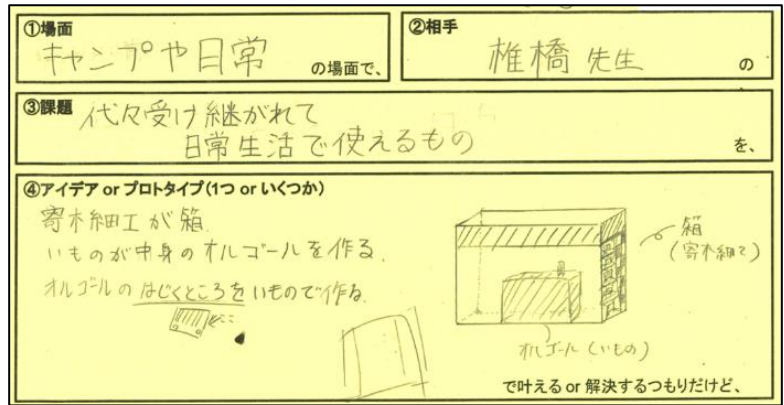 ①場面
キャンプや日常
の場面で、
②相手
椎橋 先生
の
③課題
代々受け継がれて
日常生活で使えるもの
を、
④アイデア or プロトタイプ(1つ or いくつか)
寄木細工が箱
いものが中身のオルゴールを作る
オルゴールの はじくところを いもので作る
ここ
箱
(寄木細工)
オルゴール (いもの)
で叶える or 解決するつもりだけど、